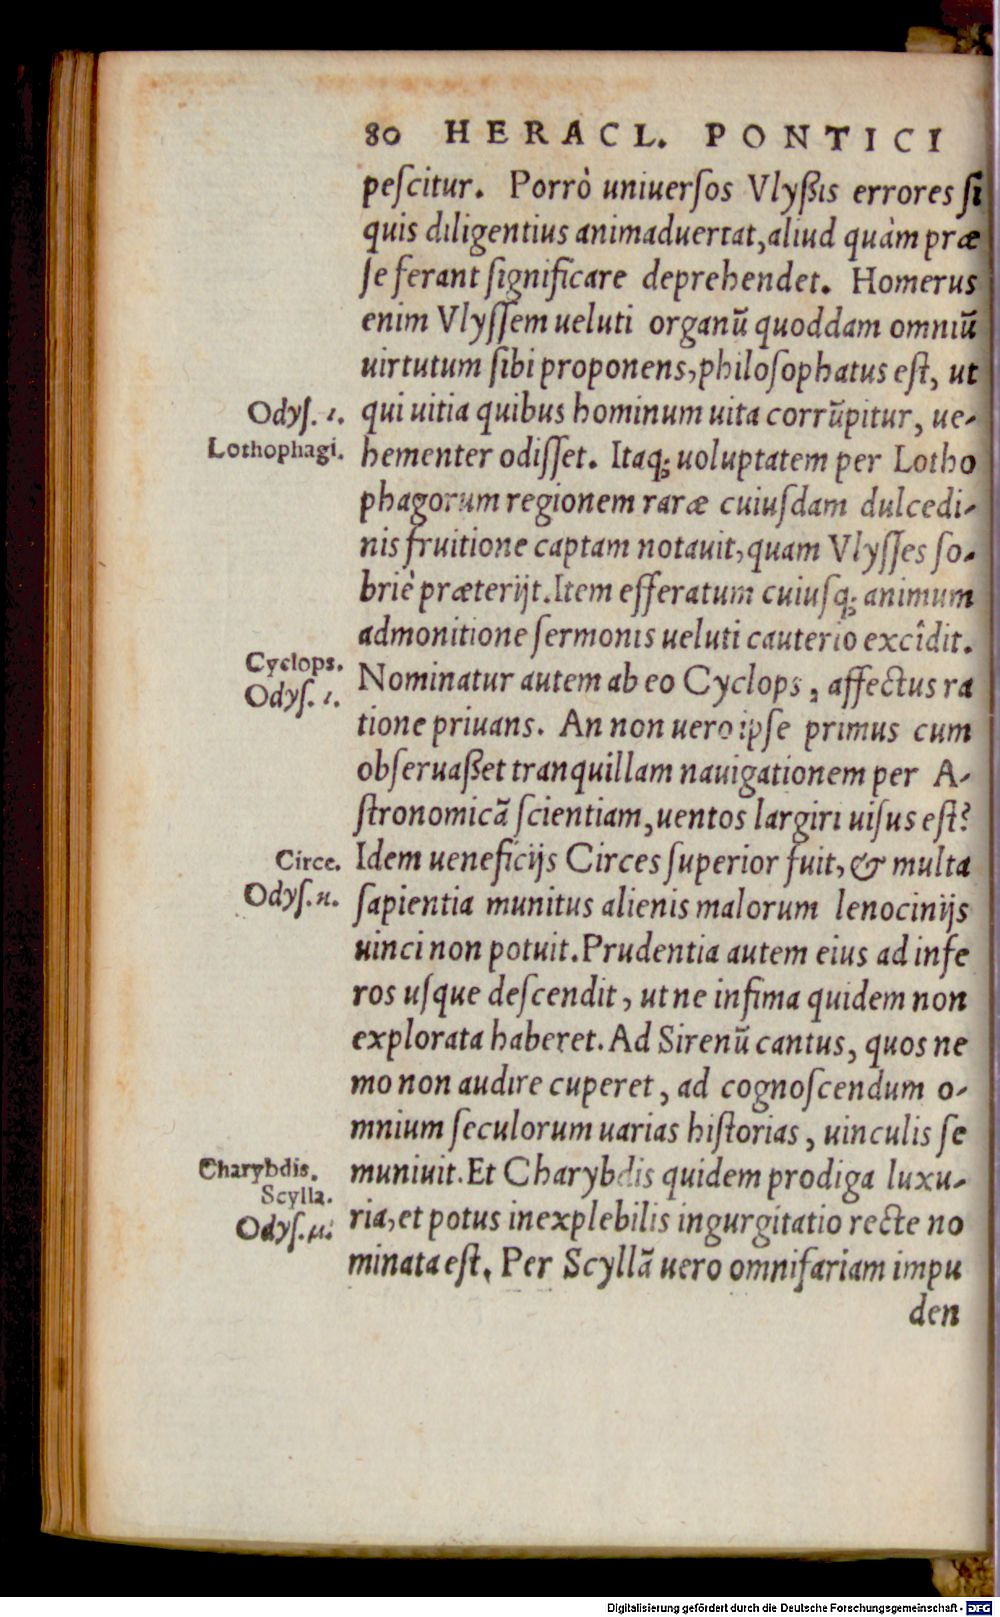 80 HERACL. PONTICI
peſcitur. Porrò uniuerſos Vlyßis errores ſi
quis diligentius animaduertat, aliud quàm præ
ſe ferant ſignificare deprehendet. Homerus
enim Vlyſſem ueluti organũ quoddam omniũ
uirtutum ſibi proponens, philoſophatus eſt, ut
Odyſ. ι.
qui uitia quibus hominum uita corrũpitur, ue-
Lothophagi.
hementer odiſſet. Itaq; uoluptatem per Lotho
phagorum regionem raræ cuiuſdam dulcedi-
nis fruitione captam notauit, quam Vlyſſes ſo-
briè præterijt. Item efferatum cuiuſq; animum
admonitione ſermonis ueluti cauterio excîdit.
Cyclops.
Nominatur autem ab eo Cyclops, affectus ra
Odyſ. ι.
tione priuans. An non uero ipſe primus cum
obſeruaßet tranquillam nauigationem per A-
ſtronomicã ſcientiam, uentos largiri uiſus eſt?
Circe.
Idem ueneficijs Circes ſuperior fuit, & multa
Odyſ. κ.
ſapientia munitus alienis malorum lenocinijs
uinci non potuit. Prudentia autem eius ad infe
ros uſque deſcendit, ut ne infima quidem non
explorata haberet. Ad Sirenũ cantus, quos ne
mo non audire cuperet, ad cognoſcendum o-
mnium ſeculorum uarias hiſtorias, uinculis ſe
Charybdis.
muniuit. Et Charybdis quidem prodiga luxu-
Scylla.
Odyſ. μ.
ria, et potus inexplebilis ingurgitatio recte no
minata eſt. Per Scyllã uero omnifariam impu
den
Digitalisierung gefördert durch die Deutsche Forschungsgemeinschaft - DFG